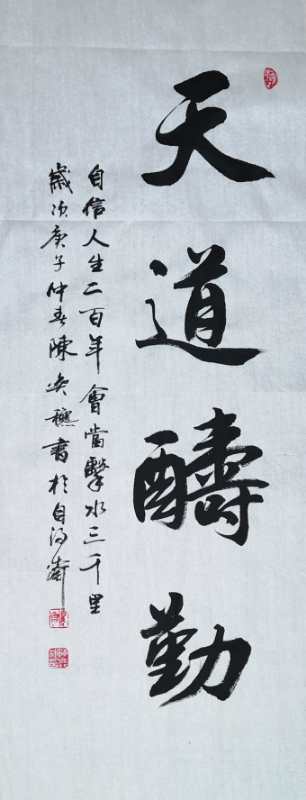 天道醻勤
自信人生二百年會當擊水三千里
歲次庚子仲春陳書於自得齋